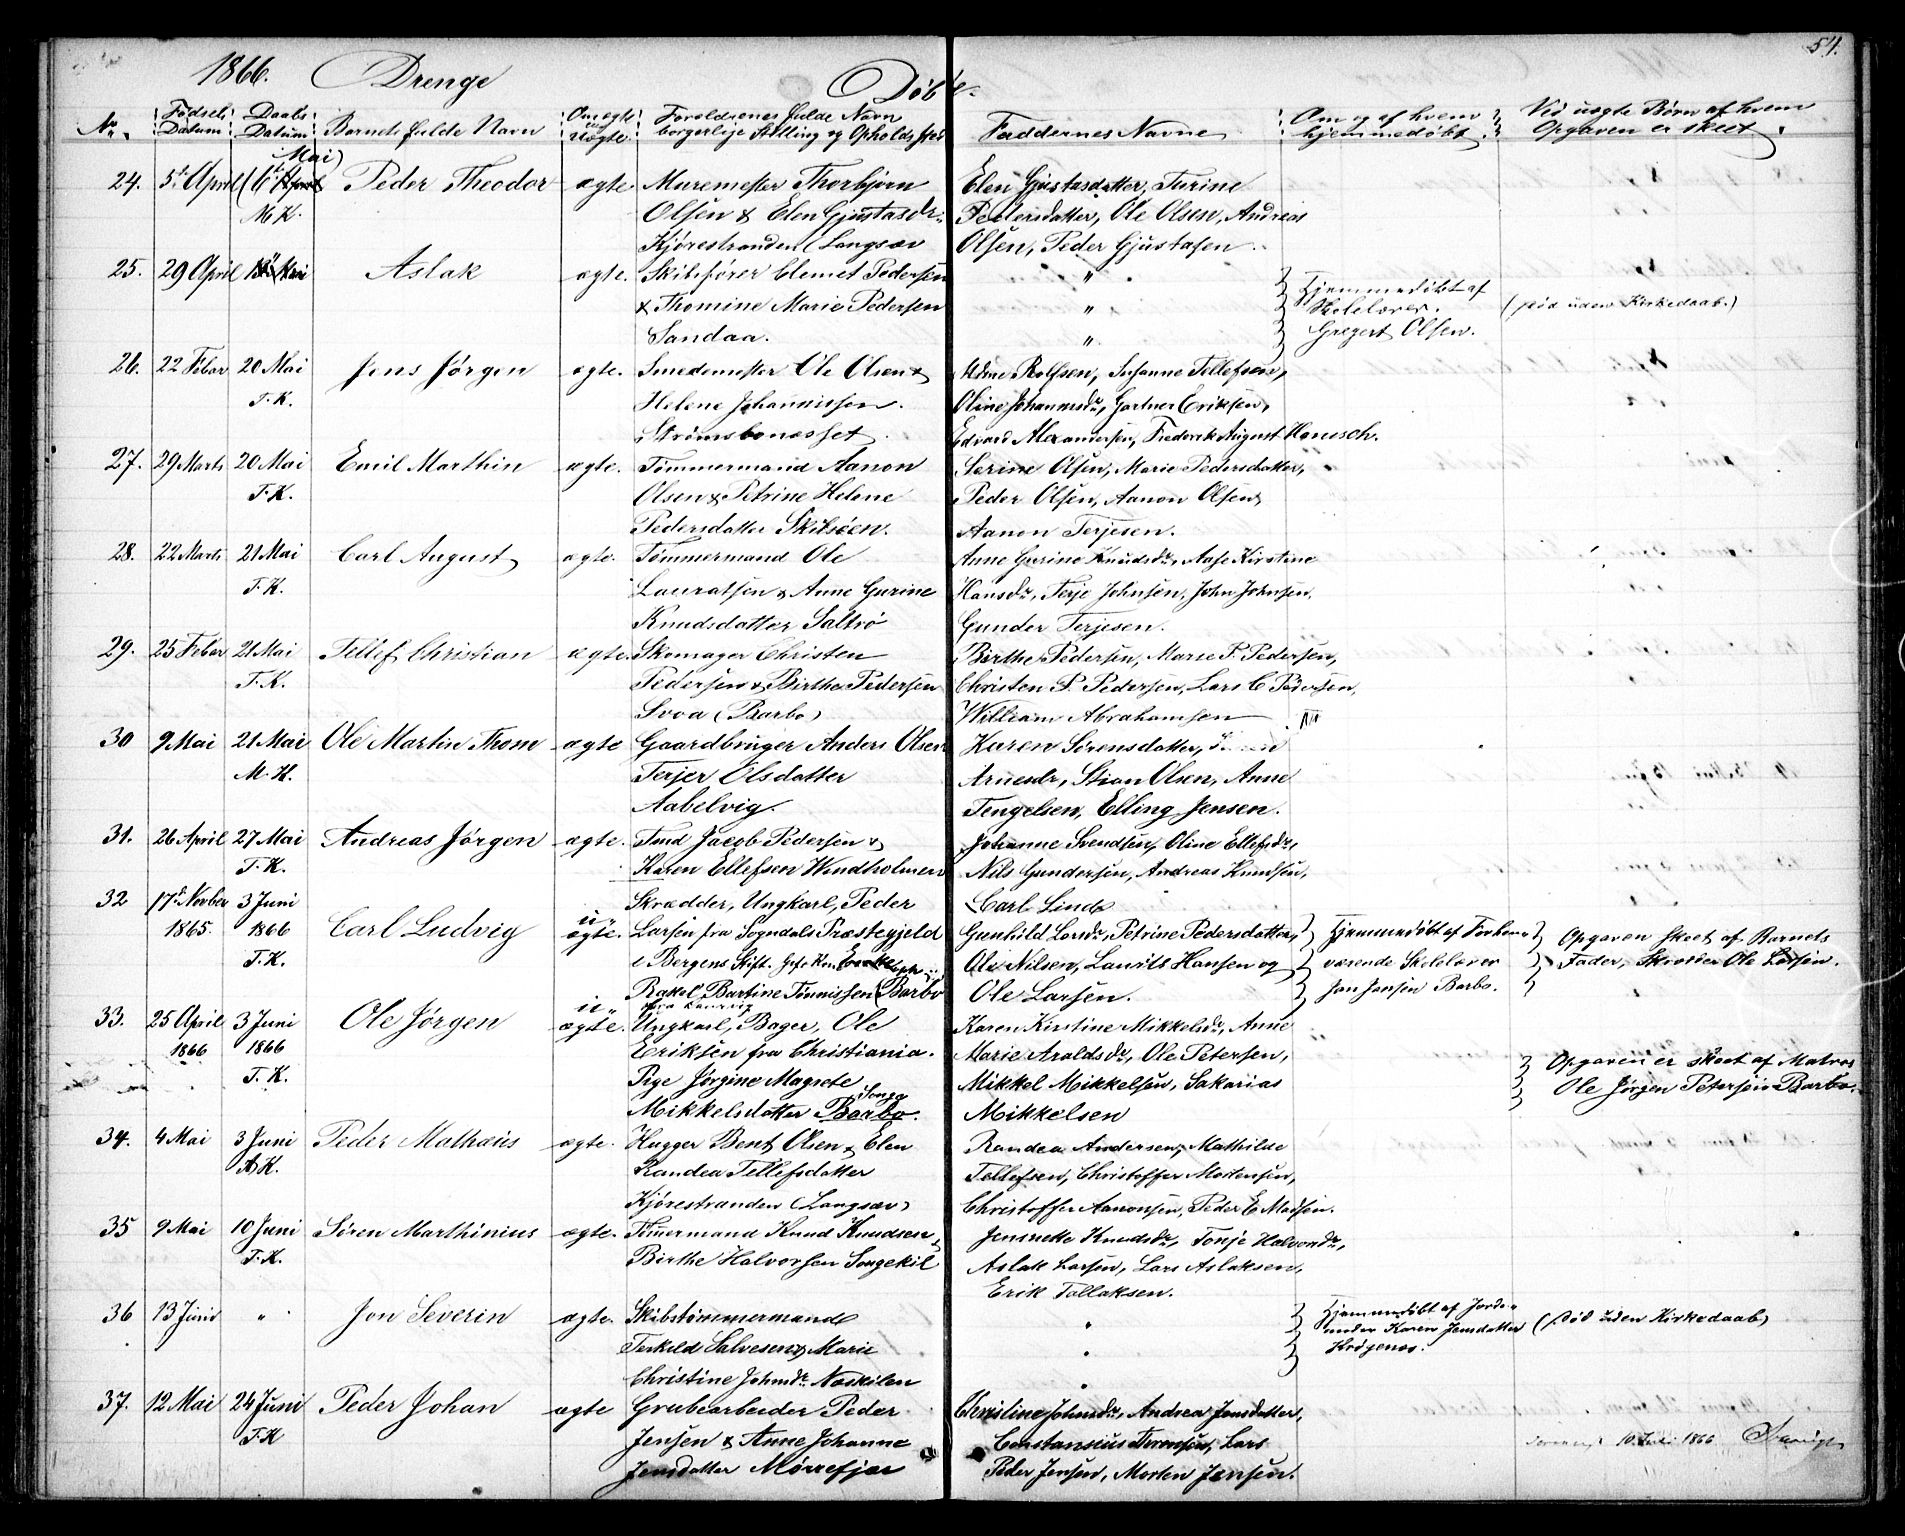 54.
1866. Drenge Døbte.
No. Fødsels Datum Daabs Datum Barnets fulde Navn Om ægte uægte Foreldrenes fulde Navn borgerlige Stilling og Opholdssted Faddernes Navne Om og af hvem hjemmedøbt Ved uægte Børn af hvem Opgaven er skeet
Mai)
24. 5te April (6te April Peder Theodor ægte Muremester Thorbjørn Elen Gjustasdatter, Turine
M K. Olsen & Elen Gjustasdr. Pedersdatter, Ole Olsen, Andreas
Kjørestranden (Langsæv Olsen, Peder Gjustasen
25. 29 April Mai Aslak ægte. Skibsfører Clemet Pedersen " Hjemmedøbt af
& Thomine Marie Pedersen " Skolelærer. (død uden Kirkedaab.)
Sandaa. " Gregert Olsen.
26. 22 Febar 20 Mai Jens Jørgen ægte. Smedemester Ole Olsen & Rolfsen, Susanne Tellefsen,
T. K. Helene Johannissen. Oline Johannsdr, Gartner Eriksen,
Strømsbonæsset. Edvard Alexandersen, Frederik August Hanisch.
27. 29 Marts 20 Mai Emil Marthin ægte. Tømmermand Aanon Serine Olsen, Marie Pedersdatter,
T. K. Olsen & Petrine Helene Peder Olsen, Aanon Olsen,
Pedersdatter Skilsøen. Aanon Terjesen.
28. 22 Marts 21 Mai Carl August ægte. Tømmermand Ole Anne Gurine Knudsdr, Aase Kirstine
T. K. Lauratsen & Anne Gurine Hansdr, Terje Johnsen, John Johnsen,
Knudsdatter Saltrø Gunder Terjesen.
29. 25 Febar 21 Mai Tellef Christian ægte. Skomager Christen Birthe Pedersen, Marie P. Pedersen,
T. K. Pedersen & Birthe Pedersen Christen P. Pedersen, Lars C Pedersen,
Svoa (Barbo) William Abrahamsen
30 9 Mai 21 Mai Ole Martin Thom ægte Gaardbruger Anders Olsen Karen Sørensdatter,
M. K. Terjer Olsdatter Arnesdr, Stian Olsen, Anne
Aabelvig. Tengelsen, Elling Jensen.
31. 26 April 27 Mai Andreas Jørgen ægte. Jacob Pedersen & Johanne Svendsen, Oline Ellefsdr,
T. K. Karen Ellefsen Windholmen Nils Gundersen, Andreas Knudsen,
32 17de Novber 3 Juni Skrædder, Ungkarl, Peder Carl Lind
1865. 1866 Carl Ludvig u- ægte. Larsen fra Sogndals Præstegjeld Gunhild Larsdr, Petrine Pedersdatter, Hjemmedøbt af Forhen- Opgaven skeet af Barnets
T. K. i Bergens Stift. Ole Nilsen, Laurits Hansen og værende Skolelærer Fader, Skrædder Ole Larsen.
Rakel Bartine Tønnissen (Barbo Ole Larsen. Jan Jansen Barbo.
33. 25 April 3 Juni Ole Jørgen u- ægte. Ungkarl, Bager, Ole Karen Kirstine Mikkelsdr, Anne
1866 1866 Eriksen fra Christiania. Marie Araldsdr, Ole Petersen, Opgaven er skeet af Matros
T. K. Pige Jørgine Magrete Mikkel Mikkelsen, Sakarias Ole Jørgen Petersen Barbo.
Mikkelsdatter Songe Barbo. Mikkelsen
34. 4 Mai 3 Juni Peder Mathæus ægte. Hugger Bent Olsen & Elen Randea Andersen, Mathilde
A K. Randea Tellefsdatter Tellefsen, Christoffer Mortensen,
Kjørestranden (Langsæv) Christoffer Aanonsen, Peder E Madsen.
35 9 Mai 10 Juni Søren Marthinius ægte. Tømermand Knud Knudsen & Jensnette Knudsdr, Tonje Halvorsdr,
T. K. Birthe Halvorsen Songekil Aslak Larsen, Lars Aslaksen,
Erik Tallaksen.
36 13 Juni " Jon Severin ægte. Skibstømmermand " Hjemmedøbt af Jorde-
Terkild Salvesen & Marie moder Karen Jensdatter (død uden Kirkedaab)
Christine Johnsdr. Næskilen Krøgenes.
37. 12 Mai 24 Juni Peder Johan ægte Grubearbeider Peder Christine Johnsdr, Andrea Jensdatter,
T. K Jensen & Anne Johanne Constansius Lars
Jensdatter Mørrefjær Peder Jensen, Morten Jensen.
10 Juli 1866